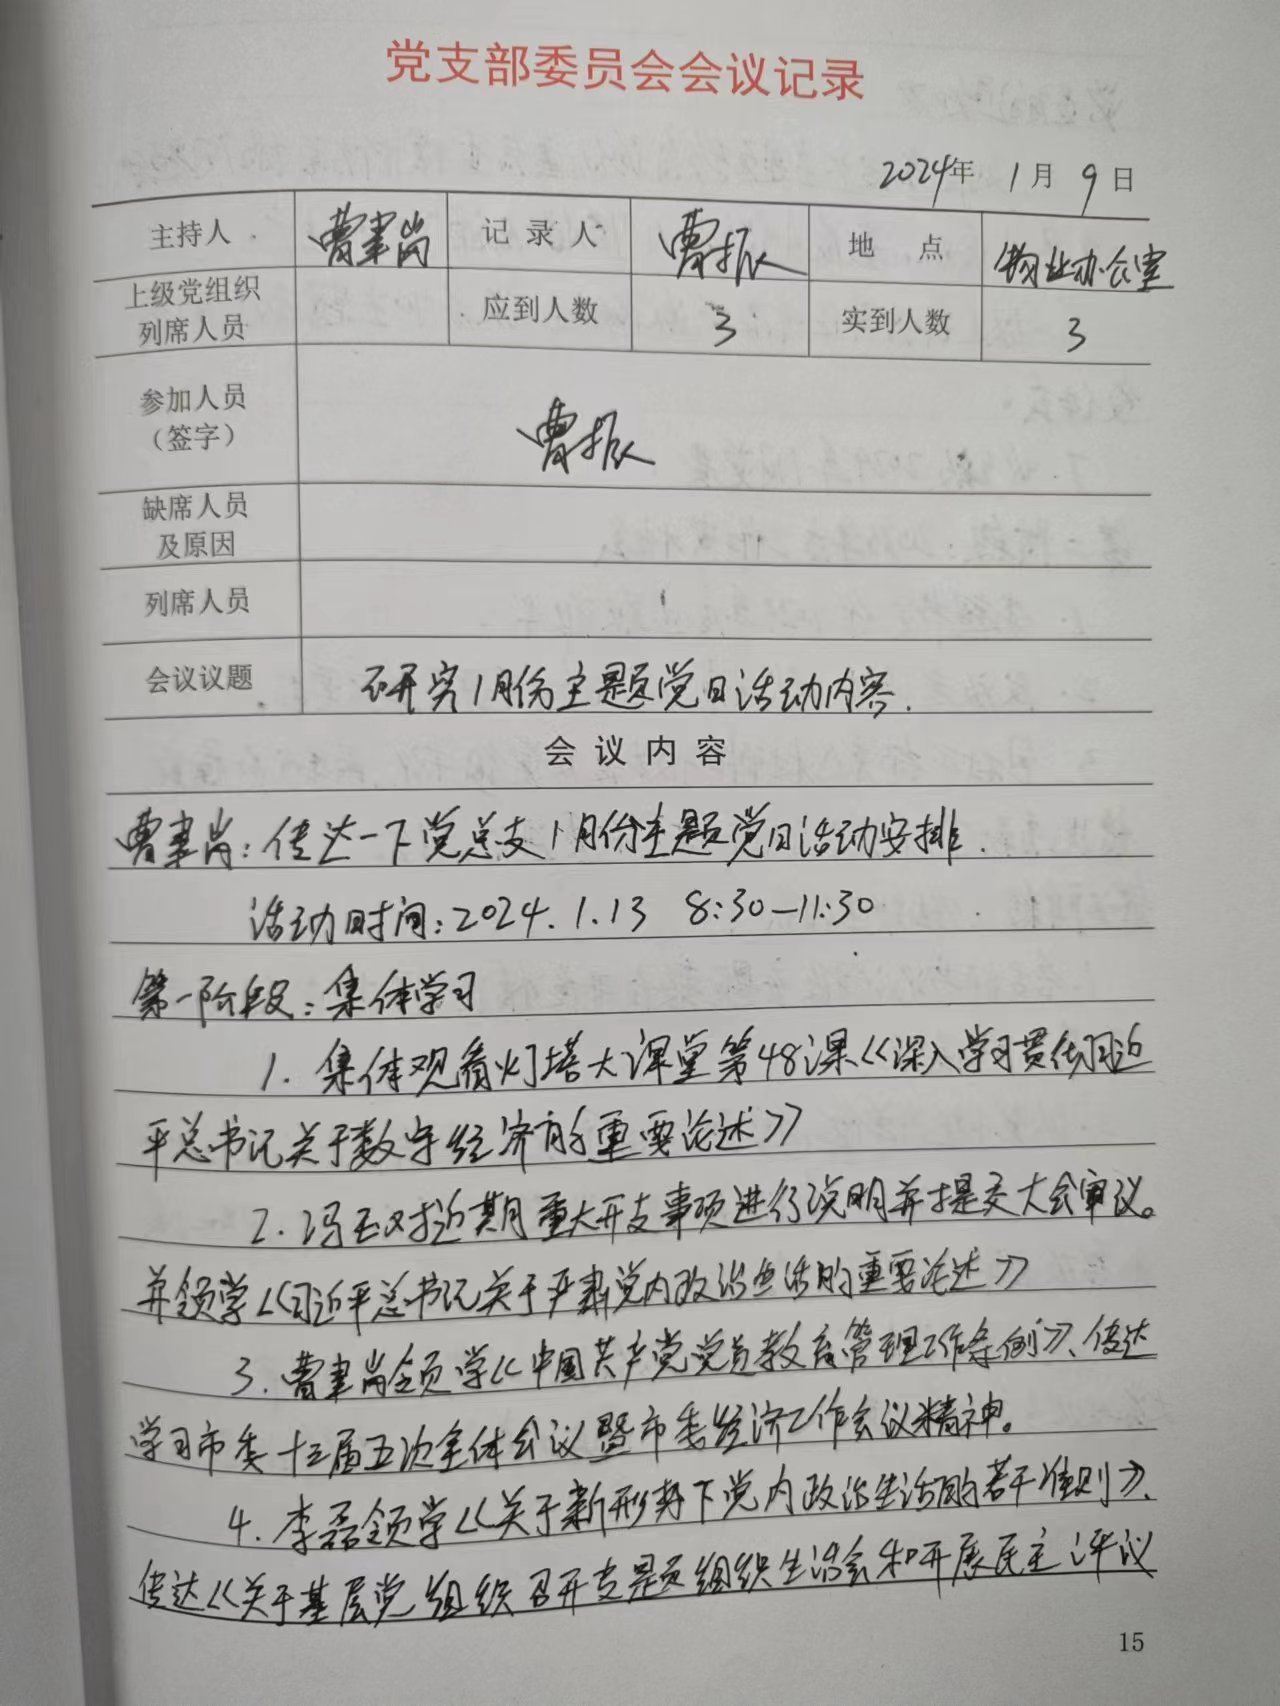 党支部委员会会议记录
2024年 1月 9日
主持人 曹聿岗 记录人 曹振 地点 物业办公室
上级党组织
列席人员 应到人数 3 实到人数 3
参加人员
(签字) 曹振
缺席人员
及原因
列席人员
会议议题 研究1月份主题党日活动内容.
会议内容
曹聿岗:传达一下党总支1月份主题党日活动安排.
活动时间:2024.1.13 8:30—11:30
第一阶段:集体学习
1. 集体观看灯塔大课堂第48课《深入学习贯彻习近
平总书记关于数字经济的重要论述》
2. 冯玉对近期重大开支事项进行说明并提交大会审议。
并领学《习近平总书记关于严肃党内政治生活的重要论述》
3. 曹聿岗领学《中国共产党党员教育管理工作条例》、传达
学习市委十三届五次全体会议暨市委经济工作会议精神。
4. 李磊领学《关于新形势下党内政治生活的若干准则》、
传达《关于基层党组织召开专题组织生活会和开展民主评议
15